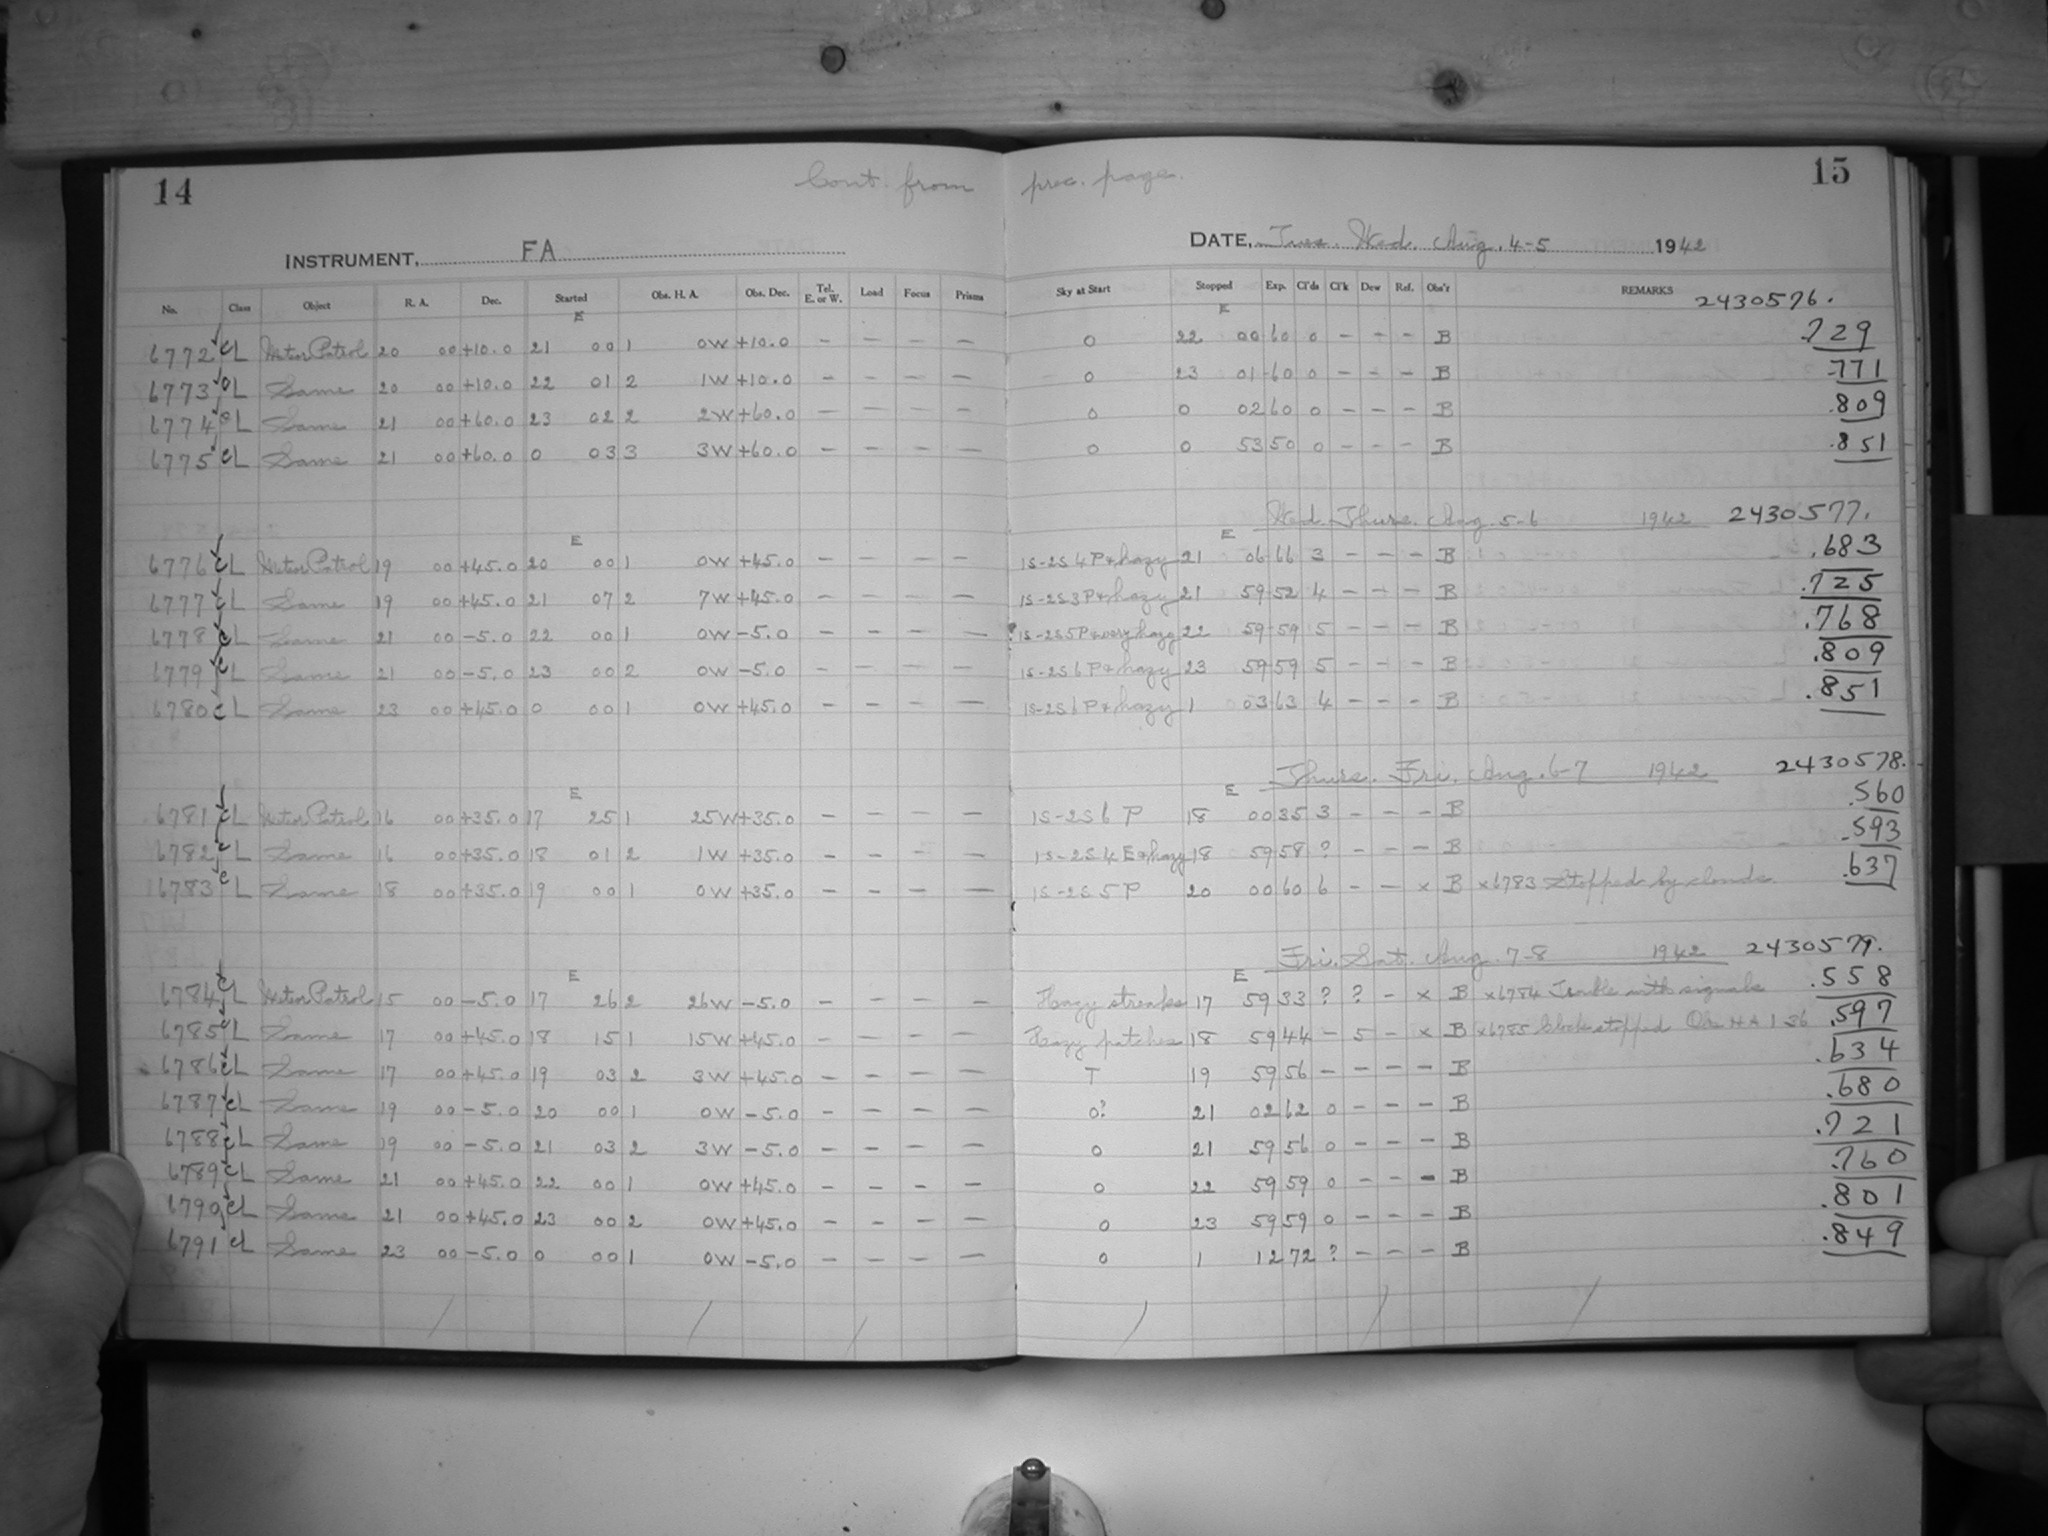 14 Cont. from prec. page. 15
INSTRUMENT, FA DATE, Tues. Wed. Aug. 4-5 1942
No. Class Object R. A. Dec. Started Obs. H. A. Obs. Dec. Tel. E. or W. Load Focus Prisms Sky at Start Stopped Exp. Cl'ds Cl'k Dew Ref. Obs'r REMARKS 2430576.
E E
6772 CL Meteor Patrol 20 00 +10.0 21 00 1 0W +10.0 – – – – 0 22 00 60 0 – – – B .729
6773 CL Same 20 00 +10.0 22 01 2 1W +10.0 – – – – 0 23 01 60 0 – – – B .771
6774 CL Same 21 00 +60.0 23 02 2 2W +60.0 – – – – 0 0 02 60 0 – – – B .809
6775 CL Same 21 00 +60.0 0 03 3 3W +60.0 – – – – 0 0 53 50 0 – – – B .851
Wed. Thurs. Aug. 5-6 1942 2430577.
E E
6776 CL Meteor Patrol 19 00 +45.0 20 00 1 0W +45.0 – – – – 1S-2S 4 P & hazy 21 06 66 3 – – – B .683
6777 CL Same 19 00 +45.0 21 07 2 7W +45.0 – – – – 1S-2S 3 P & hazy 21 59 52 4 – – – B .725
6778 CL Same 21 00 -5.0 22 00 1 0W -5.0 – – – – 1S-2S 5 P & very hazy 22 59 59 5 – – – B .768
6779 CL Same 21 00 -5.0 23 00 2 0W -5.0 – – – – 1S-2S 6 P & hazy 23 59 59 5 – – – B .809
6780 CL Same 23 00 +45.0 0 00 1 0W +45.0 – – – – 1S-2S 6 P & hazy 1 03 63 4 – – – B .851
Thurs. Fri. Aug. 6-7 1942 2430578.
E E
6781 CL Meteor Patrol 16 00 +35.0 17 25 1 25W +35.0 – – – – 1S-2S 6 P 18 00 35 3 – – – B .560
6782 CL Same 16 00 +35.0 18 01 2 1W +35.0 – – – – 1S-2S 4 E & hazy 18 59 58 ? – – – B .593
6783 CL Same 18 00 +35.0 19 00 1 0W +35.0 – – – – 1S-2S 5 P 20 00 60 6 – – x B x6783 Stopped by clouds .637
Fri. Sat. Aug. 7-8 1942 2430579.
E E
6784 CL Meteor Patrol 15 00 -5.0 17 26 2 26W -5.0 – – – – Hazy streaks 17 59 33 ? ? – x B x6784 Trouble with signals .558
6785 CL Same 17 00 +45.0 18 15 1 15W +45.0 – – – – Hazy patches 18 59 44 – 5 – x B x6785 Clock stopped Obs. H A 1 36 .597
6786 CL Same 17 00 +45.0 19 03 2 3W +45.0 – – – – T 19 59 56 – – – – B .634
6787 CL Same 19 00 -5.0 20 00 1 0W -5.0 – – – – 0? 21 02 62 0 – – – B .680
6788 CL Same 19 00 -5.0 21 03 2 3W -5.0 – – – – 0 21 59 56 0 – – – B .721
6789 CL Same 21 00 +45.0 22 00 1 0W +45.0 – – – – 0 22 59 59 0 – – – B .760
6790 CL Same 21 00 +45.0 23 00 2 0W +45.0 – – – – 0 23 59 59 0 – – – B .801
6791 CL Same 23 00 -5.0 0 00 1 0W -5.0 – – – – 0 1 12 72 ? – – – B .849